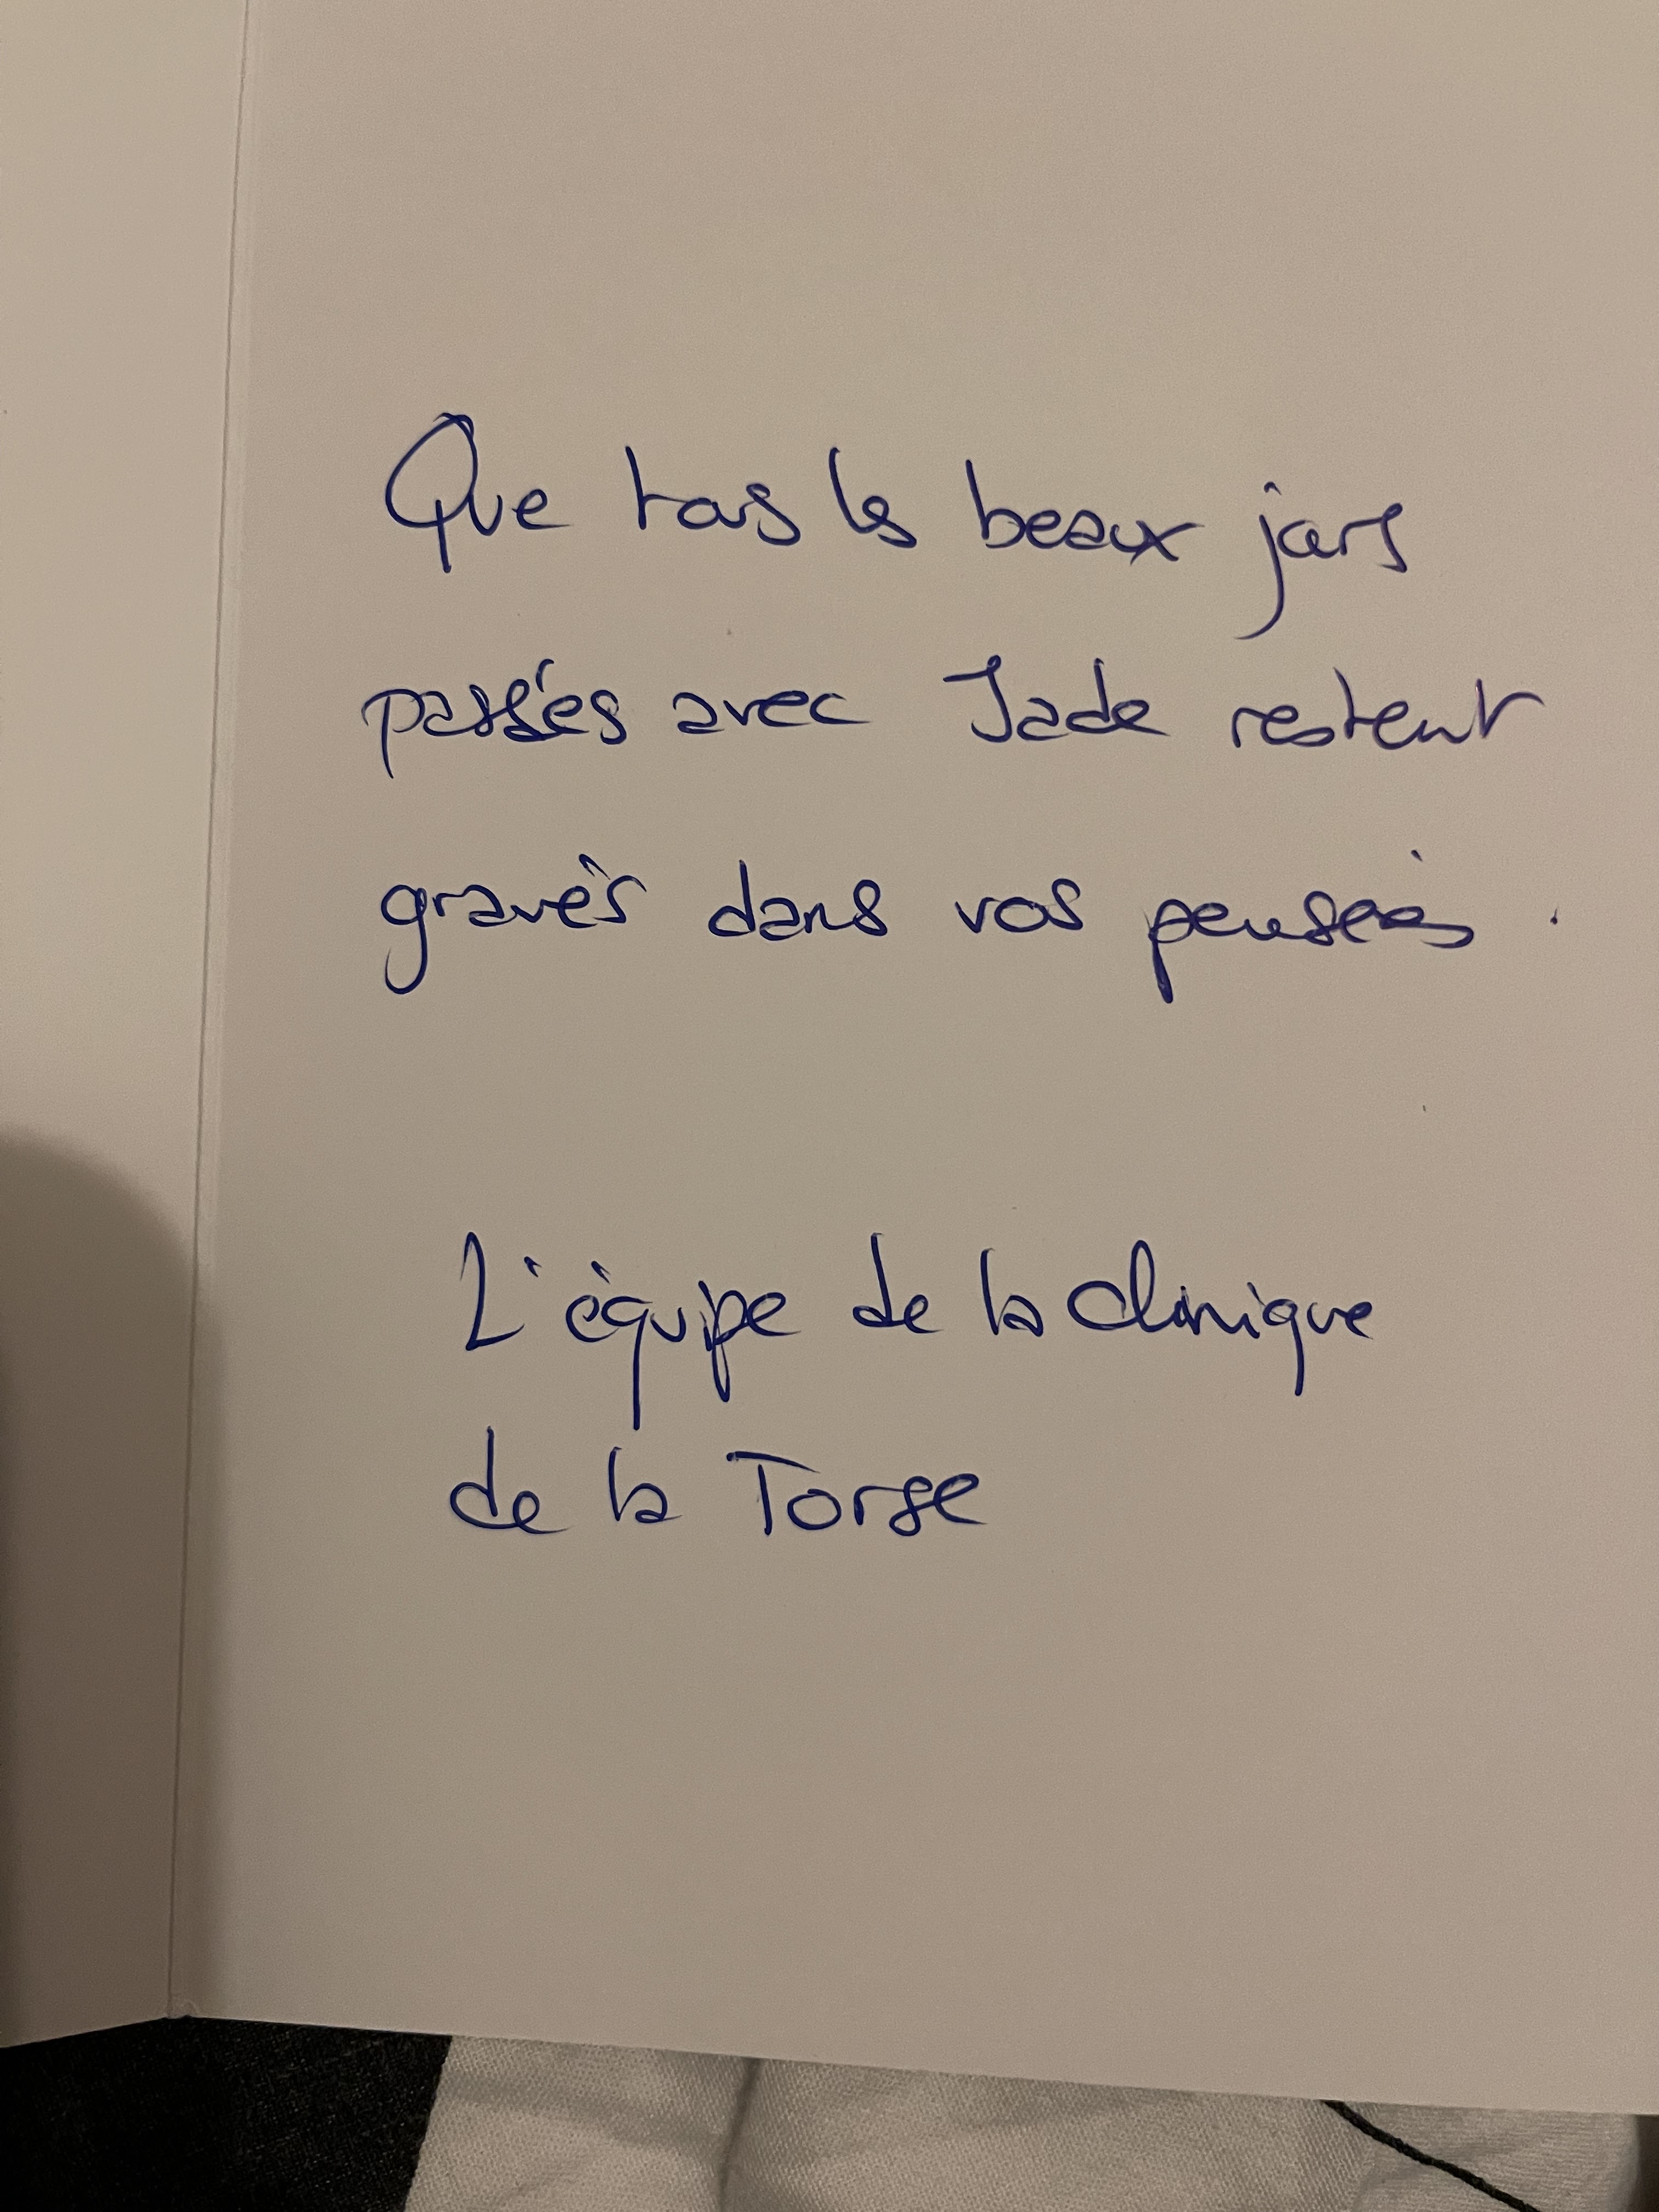 Que tous les beaux jours
passés avec Jade restent
gravés dans vos pensées.
L'équipe de la clinique
de la Torse